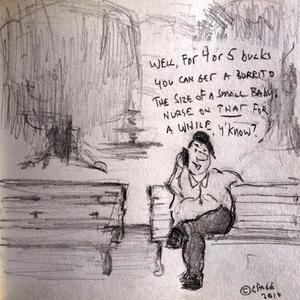 WELL, FOR 4 OR 5 BUCKS
YOU CAN GET A BURRITO
THE SIZE OF A SMALL BABY.
NURSE ON THAT FOR
A WHILE, Y'KNOW?
© CPAGE
2010